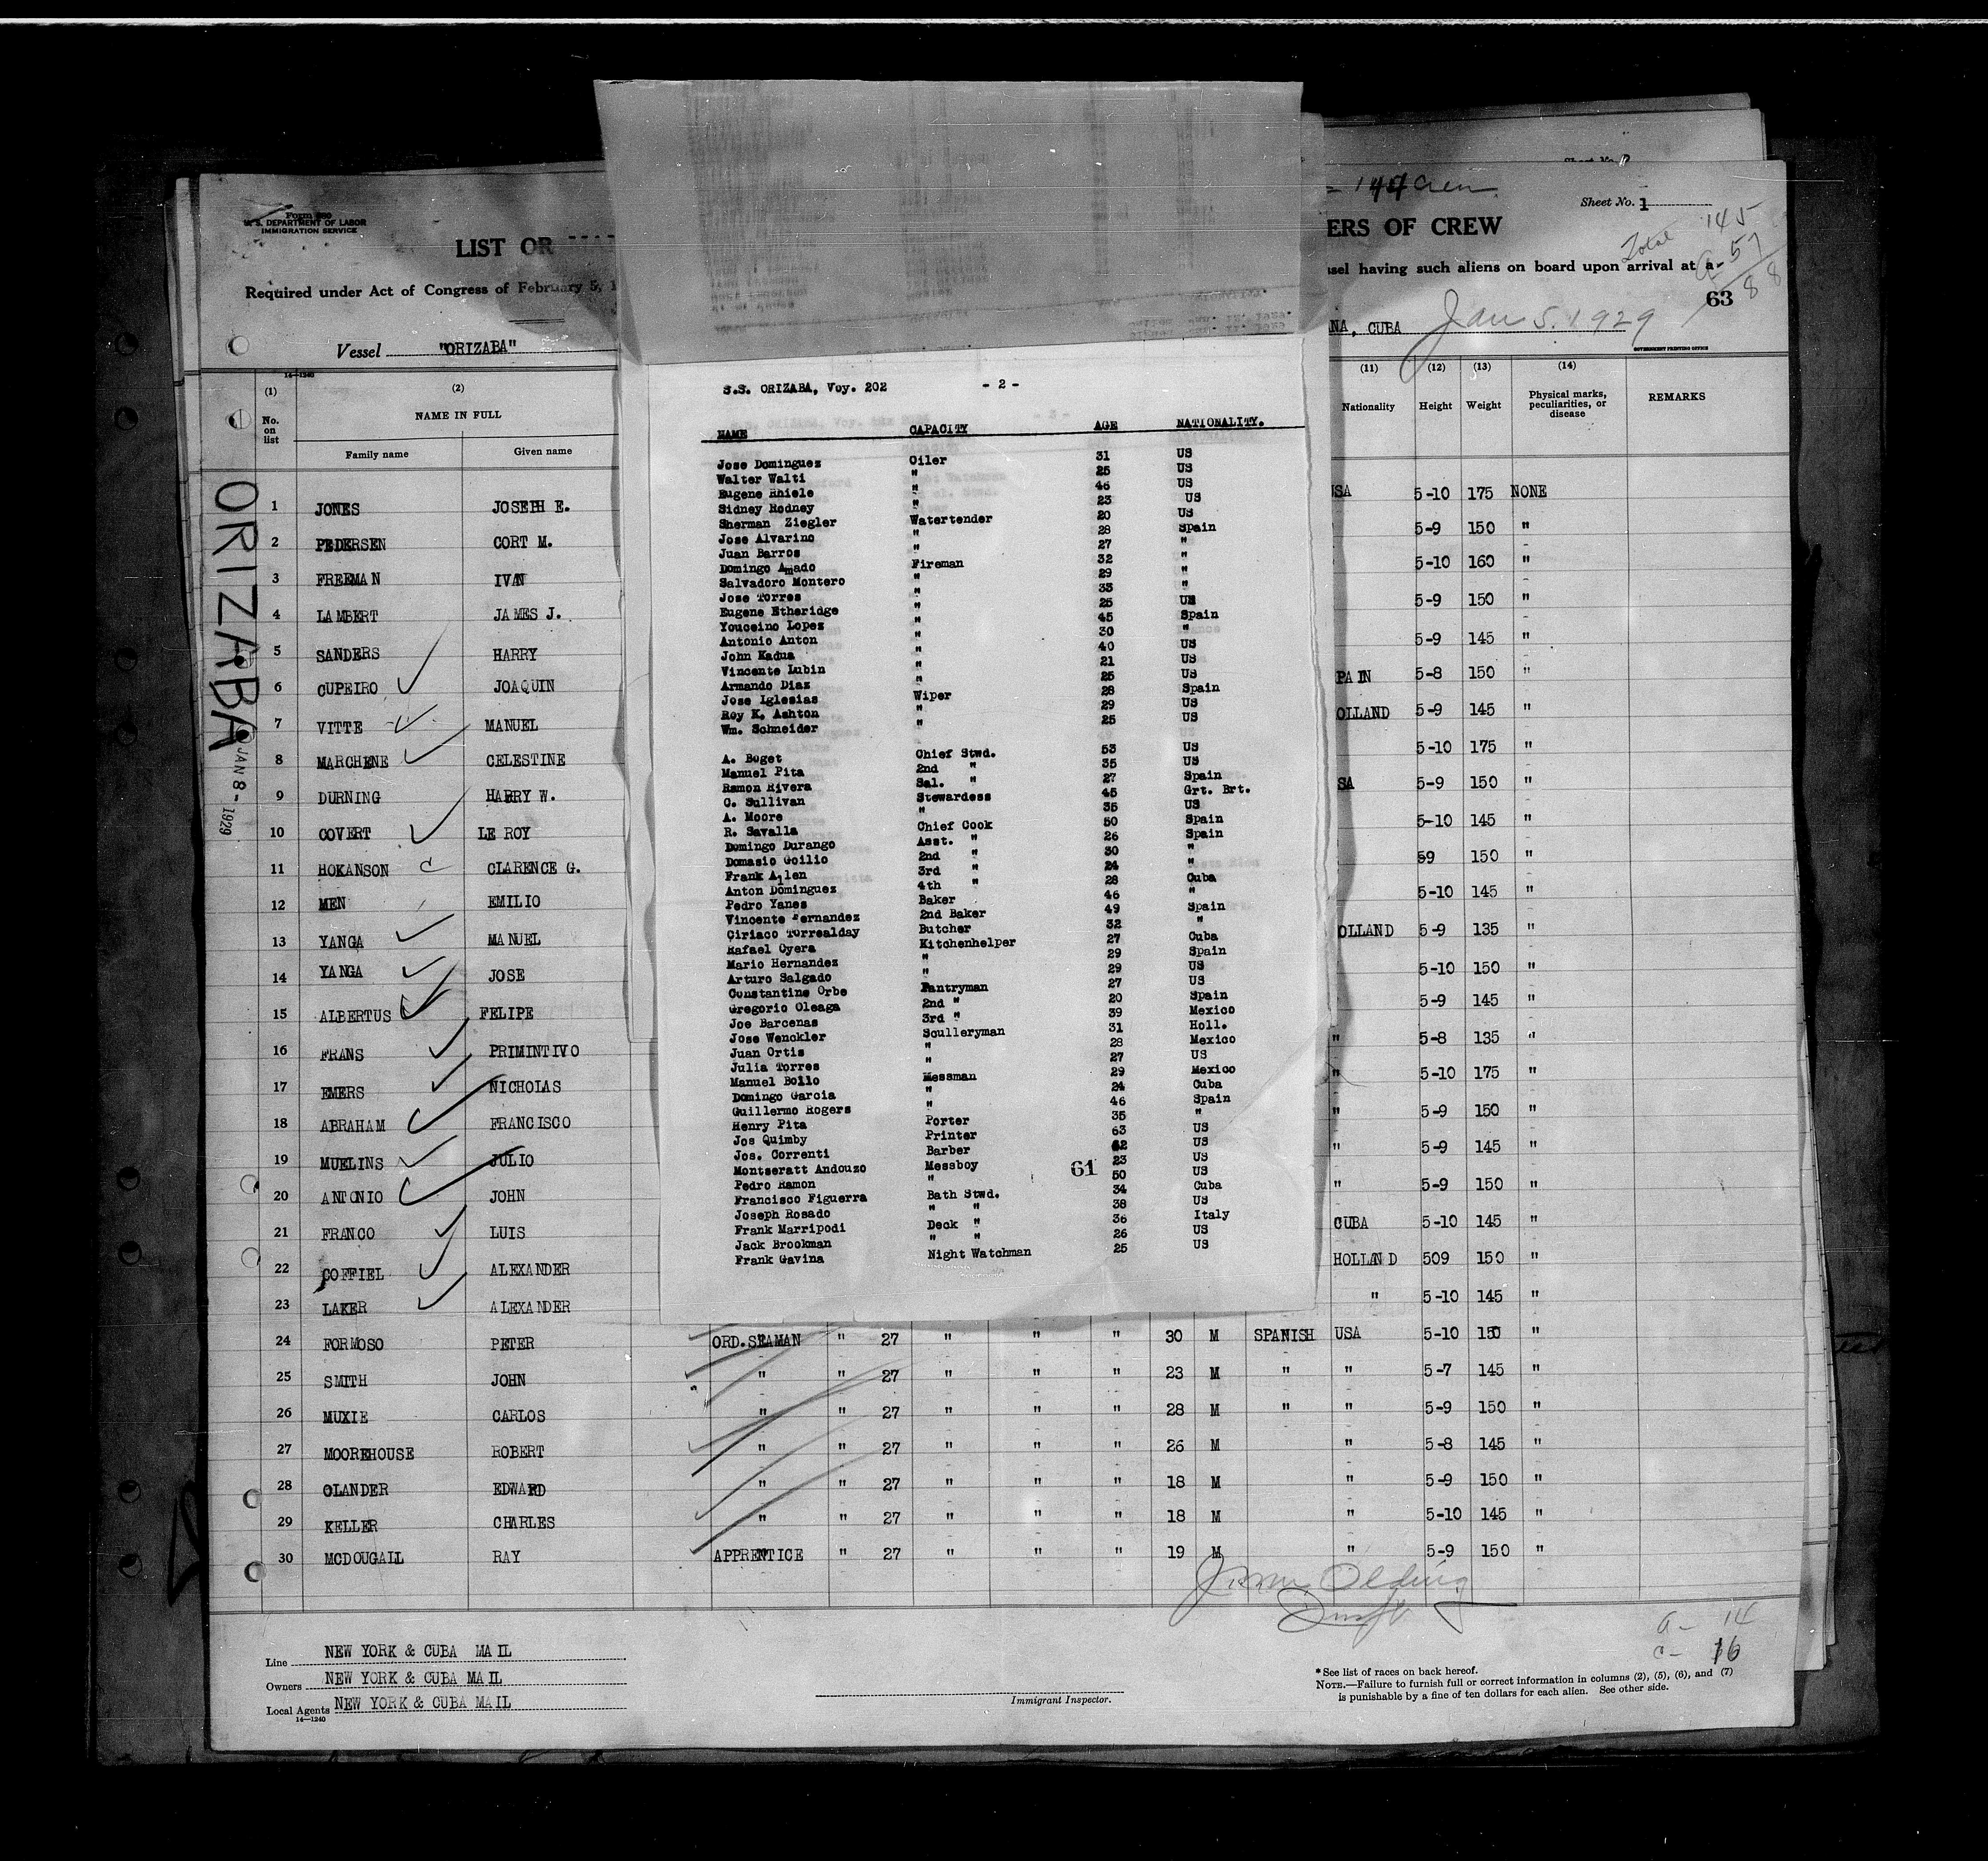 Form 680
U. S. DEPARTMENT OF LABOR
IMMIGRATION SERVICE
LIST OR
ERS OF CREW
144 Crew
Sheet No. 1
Total 145
a-57
88
Required under Act of Congress of February 5, 1
ssel having such aliens on board upon arrival at a-
63
Vessel "ORIZABA"
NA, CUBA Jan 5. 1929
GOVERNMENT PRINTING OFFICE
14—1240
(1) (2) (11) (12) (13) (14)
No. on list NAME IN FULL Nationality Height Weight Physical marks, peculiarities, or disease REMARKS
Family name Given name
ORIZABA JAN 8 - 1929
1 JONES JOSEPH E. SA 5-10 175 NONE
2 PEDERSEN CORT M. 5-9 150 "
3 FREEMAN IVAN 5-10 160 "
4 LAMBERT JAMES J. 5-9 150 "
5 SANDERS HARRY 5-9 145 "
6 CUPEIRO JOAQUIN PAIN 5-8 150 "
7 VITTE MANUEL OLLAND 5-9 145 "
8 MARCHENE CELESTINE 5-10 175 "
9 DURNING HARRY W. SA 5-9 150 "
10 COVERT LE ROY 5-10 145 "
11 HOKANSON CLARENCE G. 59 150 "
12 MEN EMILIO 5-10 145 "
13 YANGA MANUEL OLLAND 5-9 135 "
14 YANGA JOSE 5-10 150 "
15 ALBERTUS FELIPE 5-9 145 "
16 FRANS PRIMINTIVO " 5-8 135 "
17 EMERS NICHOLAS " 5-10 175 "
18 ABRAHAM FRANCISCO " 5-9 150 "
19 MUELINS JULIO " 5-9 145 "
20 ANTONIO JOHN " 5-9 150 "
21 FRANCO LUIS CUBA 5-10 145 "
22 COFFIEL ALEXANDER HOLLAND 509 150 "
23 LAKER ALEXANDER " 5-10 145 "
24 FORMOSO PETER ORD.SEAMAN " 27 " " " 30 M SPANISH USA 5-10 150 "
25 SMITH JOHN " " 27 " " " 23 M " " 5-7 145 "
26 MUXIE CARLOS " " 27 " " " 28 M " " 5-9 150 "
27 MOOREHOUSE ROBERT " " 27 " " " 26 M " 5-8 145 "
28 OLANDER EDWARD " " 27 " " " 18 M " 5-9 150 "
29 KELLER CHARLES " " 27 " " " 18 M " 5-10 145 "
30 MCDOUGALL RAY APPRENTICE " 27 " " " 19 M " 5-9 150 "
a- 14
c- 16
Line NEW YORK & CUBA MAIL
Owners NEW YORK & CUBA MAIL
Local Agents NEW YORK & CUBA MAIL
14—1240
Immigrant Inspector.
* See list of races on back hereof.
NOTE.—Failure to furnish full or correct information in columns (2), (5), (6), and (7)
is punishable by a fine of ten dollars for each alien. See other side.
S.S. ORIZABA, Voy. 202 - 2 -
NAME CAPACITY AGE NATIONALITY.
Jose Dominguez Oiler 31 US
Walter Walti " 25 US
Eugene Rhiele " 46 US
Sidney Rodney " 23 US
Sherman Ziegler Watertender 20 US
Jose Alvarino " 28 Spain
Juan Barros " 27 "
Domingo Amado Fireman 32 "
Salvadoro Montero " 29 "
Jose Torres " 33 "
Eugene Etheridge " 25 US
Youceino Lopez " 45 Spain
Antonio Anton " 30 "
John Kadua " 40 US
Vincente Lubin " 21 US
Armando Diaz " 25 US
Jose Iglesias Wiper 28 Spain
Roy K. Ashton " 29 US
Wm. Schneider " 25 US
A. Boget Chief Stwd. 53 US
Manuel Pita 2nd " 35 US
Ramon Rivera Sal. " 27 Spain
C. Sullivan Stewardess 45 Grt. Brt.
A. Moore " 35 US
R. Savalla Chief Cook 50 Spain
Domingo Durango Asst. " 26 Spain
Domasio Goilio 2nd " 30 "
Frank Allen 3rd " 24 "
Anton Dominguez 4th " 28 Cuba
Pedro Yanes Baker 46 "
Vincente Fernandez 2nd Baker 49 Spain
Ciriaco Torrealday Butcher 32 "
Rafael Oyera Kitchenhelper 27 Cuba
Mario Hernandez " 29 Spain
Arturo Salgado " 29 US
Constantine Orbe Pantryman 27 US
Gregorio Oleaga 2nd " 20 Spain
Joe Barcenas 3rd " 39 Mexico
Jose Wenckler Sculleryman 31 Holl.
Juan Ortis " 28 Mexico
Julia Torres " 27 US
Manuel Bollo Messman 29 Mexico
Domingo Garcia " 24 Cuba
Guillermo Rogers " 46 Spain
Henry Pita Porter 35 "
Jos Quimby Printer 63 US
Jos. Correnti Barber 62 US
Montseratt Andouzo Messboy 23 US
Pedro Ramon " 50 US
Francisco Figuerra Bath Stwd. 34 Cuba
Joseph Rosado " " 38 US
Frank Marripodi Deck " 36 Italy
Jack Brookman " " 26 US
Frank Gavina Night Watchman 25 US
61